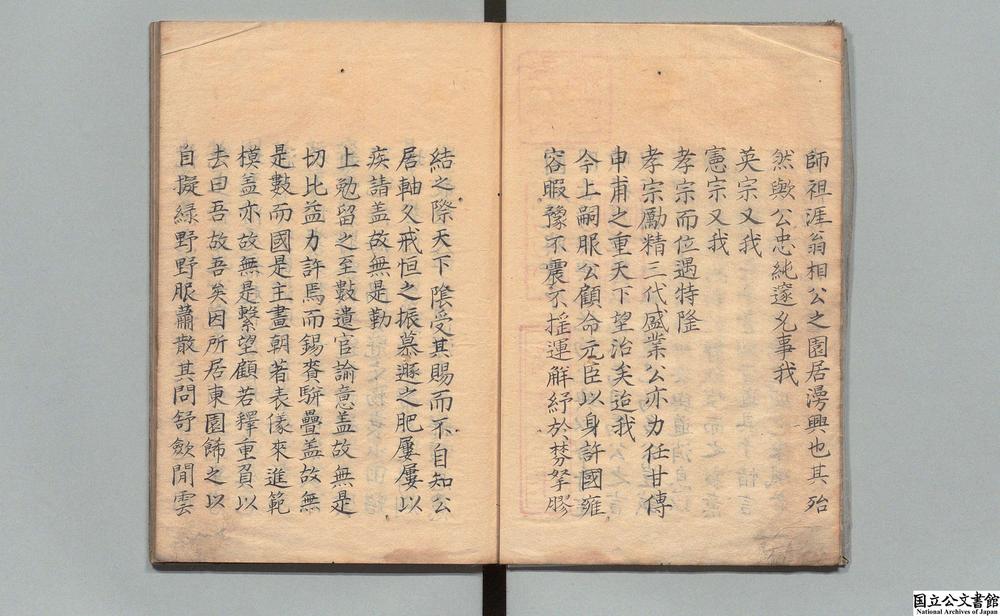 師祖涯翁相公之園居漫興也其殆
然歟公忠純邃允事我
英宗又我
憲宗又我
孝宗而位遇特隆
孝宗勵精三代盛業公亦力任甘傳
申甫之重天下望治矣迨我
今上嗣服公顧命元臣以身許國雍
容暇豫不震不揺運解紓於棼拏膠
結之際天下陰受其賜而不自知公
居軸久戒恒之振慕遯之肥屢屢以
疾請盖故無是勤
上勉留之至數遣官諭意盖故無是
切比益力許焉而錫賚駢疊盖故無
是數而國是主畫朝著表儀來進範
模盖亦故無是繫望顧若釋重負以
去曰吾故吾矣因所居東園餙之以
自擬緑野野服蕭散其問舒歛閒雲
国立公文書館
National Archives of Japan